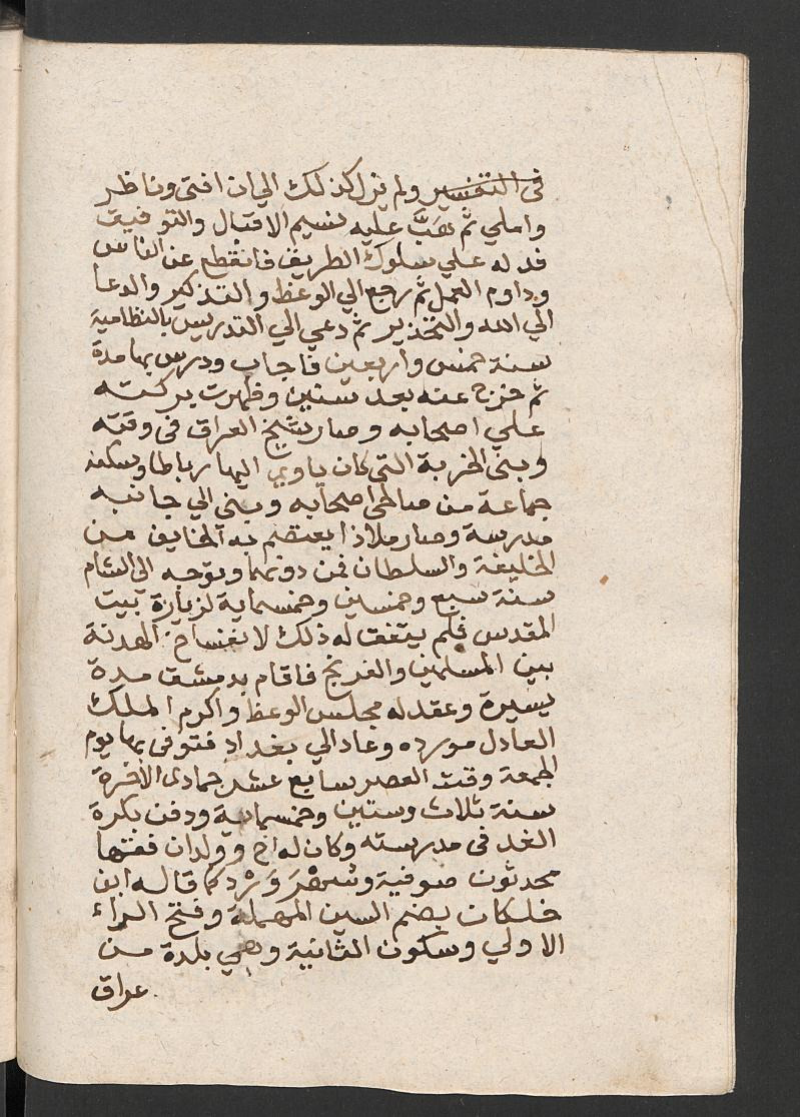 في التفسير ولم يزل كذلك الي ان افتي وناظر
واملي ثم هَبَّ عليه نسيم الاقبال والتوفيق
فدله علي سلوك الطريق فانقطع عن الناس
وداوم العمل ثم رجع الي الوعظ والتذكير والدعا
الي الله والتحذير ثم دعي الي التدريس بالنظامية
سنة خمس واربعين فاجاب ودرس بها مدة
ثم خرج عنه بعد سنين وظهرت بركته
علي اصحابه وصار شيخ العراق في وقته
وبني الخربة التي كان ياوي اليها رباطا وسكنه
جماعة من صالحي اصحابه وبني الي جانبه
مدرسة وصار ملاذا يعتصم به الخايف من
الخليفة والسلطان فمن دونهما وتوجه الي الشام
سنة سبع وخمسين وخمسماية لزيارة بيت
المقدس فلم يتفق له ذلك لانفساخ الهدنة
بين المسلمين والفرنج فاقام بدمشق مدة
يسيرة وعقد له مجلس الوعظ واكرم الملك
العادل مورده وعاد الي بغداد فتوفي بها يوم
الجمعة وقت العصر سابع عشر جمادي الاخرة
سنة ثلاث وستين وخمسماية ودفن بكرة
الغد في مدرسته وكان له اخ وولدان فقها
محدثون صوفية وسُهْرَوَرْد كما قاله ابن
خلكان بضم السين المهملة وفتح الراء
الاولي وسكون الثانية وهي بلدة من
عراق